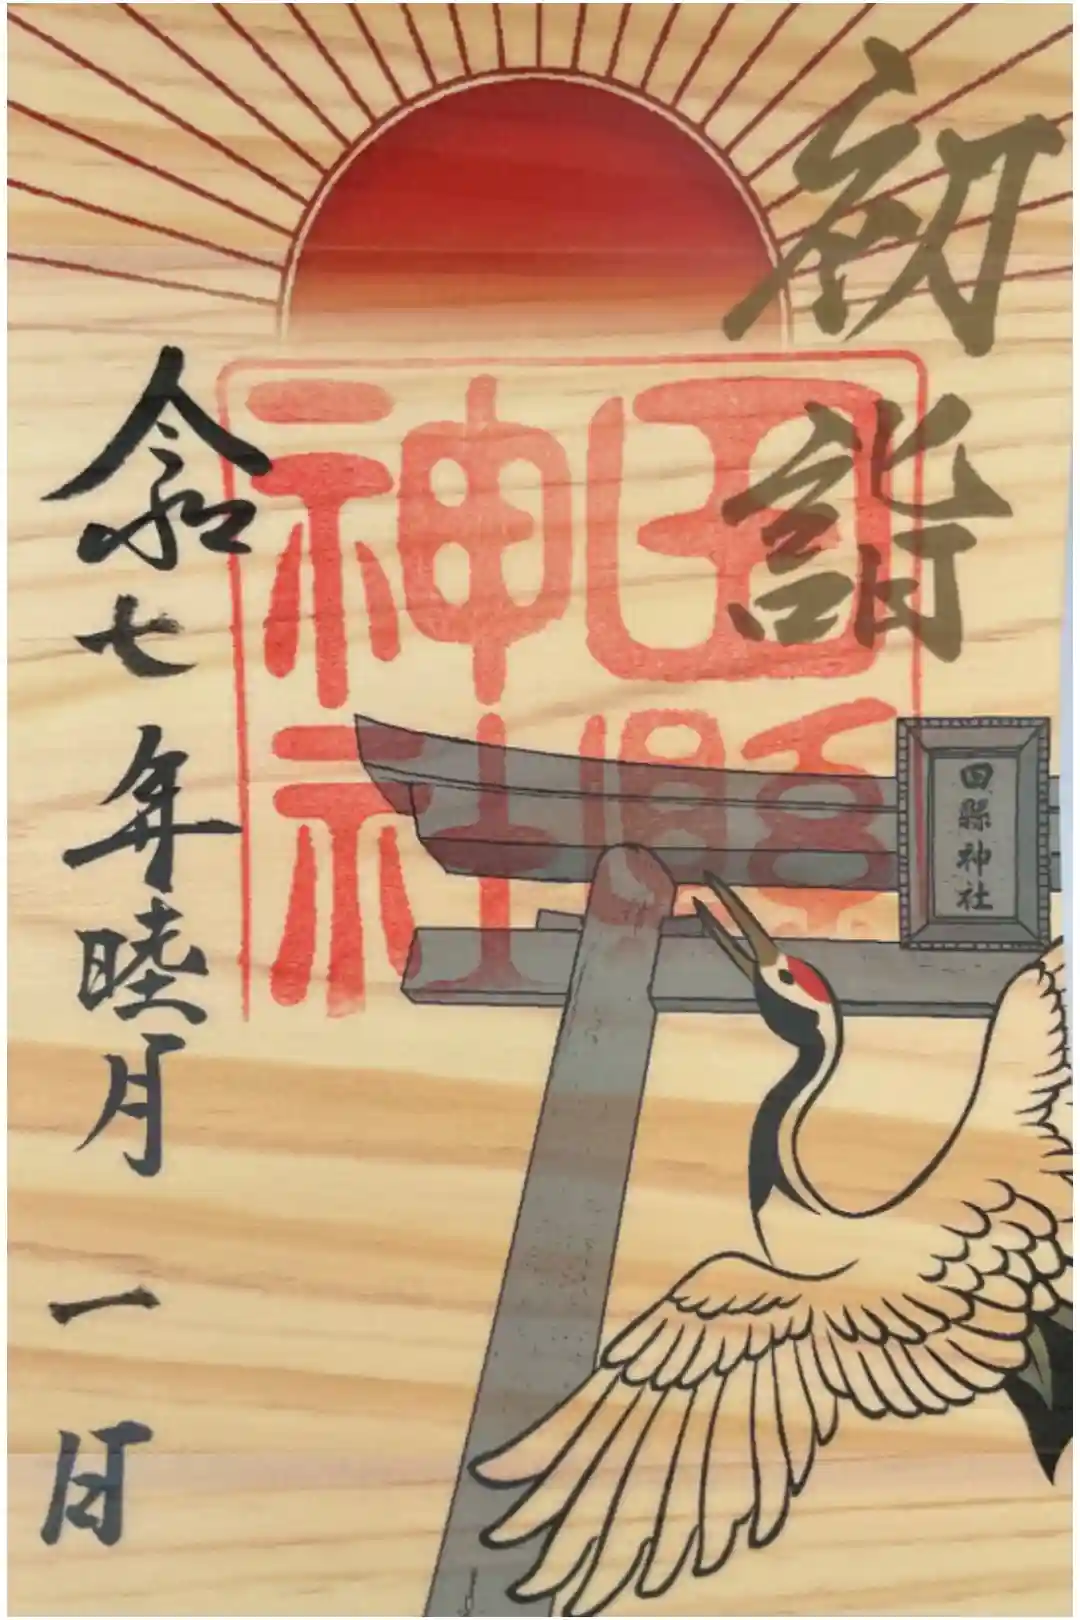 初詣
田縣神社
田縣神社
令和七年睦月一日